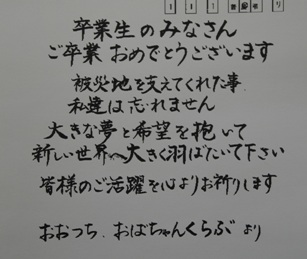 卒業生のみなさん
ご卒業 おめでとうございます
被災地を支えてくれた事
私達は忘れません
大きな夢と希望を抱いて
新しい世界へ大きく羽ばたいて下さい
皆様のご活躍を心よりお祈りします
おおつち、おばちゃんくらぶ より